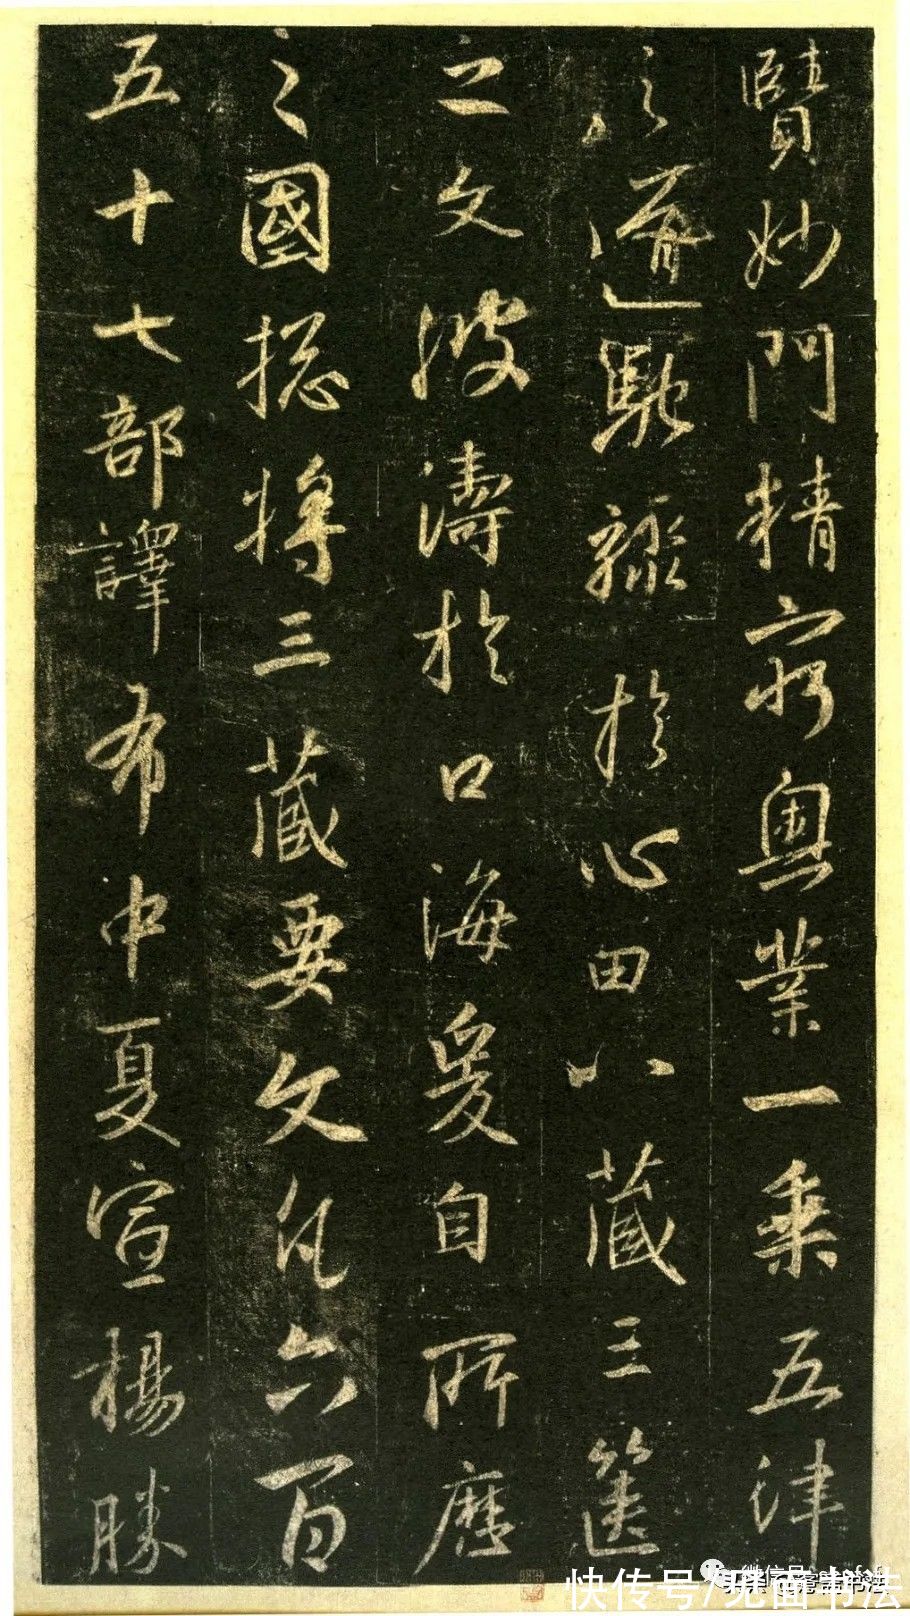 賢妙門精窮奧業一乘五津
之道馳驟於心田八藏三篋
之文波濤於口海爰自所歷
之國揔將三藏要文凡六百
五十七部譯布中夏宣楊勝
快传号/见面书法